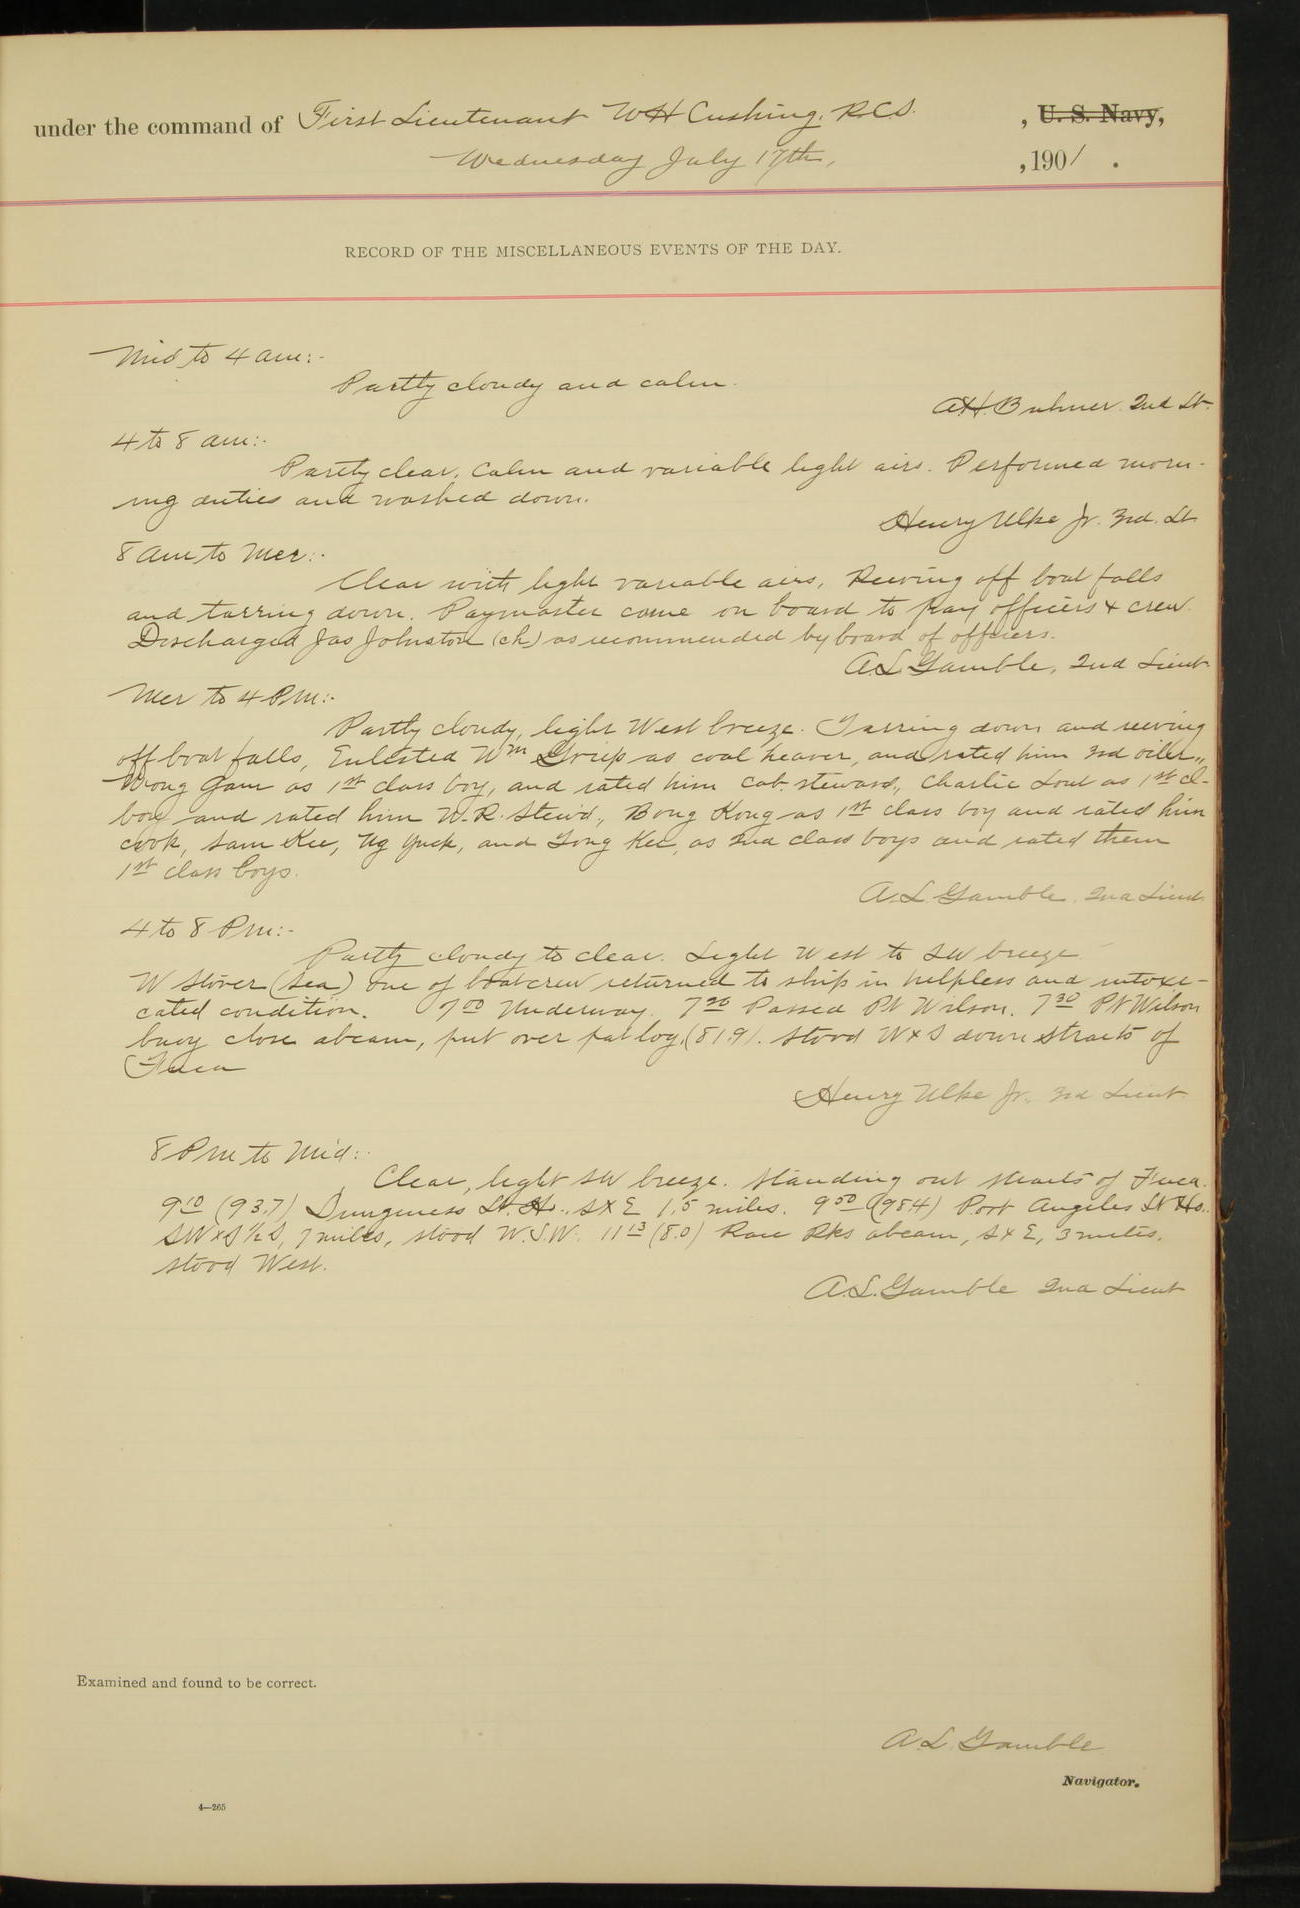 under the command of First Lieutenant W H Cushing, R.C.S. , U. S. Navy,
Wednesday July 17th, , 1901 .
RECORD OF THE MISCELLANEOUS EVENTS OF THE DAY.
Mid to 4 am:-
Partly cloudy and calm.
A.H. Buhner 2nd Lt.
4 to 8 am:-
Partly clear, calm and variable light airs. Performed morn-
ing duties and washed down.
Henry Ulke Jr. 3rd. Lt.
8 am to Mer:-
Clear with light variable airs. Reeving off boat falls
and tarring down. Paymaster came on board to pay officers & crew.
Discharged Jas Johnston (ch) as recommended by board of officers.
A.L. Gamble, 2nd Lieut
Mer to 4 P.m:-
Partly cloudy, light West breeze. Tarring down and reeving
off boat falls, Enlisted Wm as coal heaver, and rated him 2nd oiler,
Wong Gam as 1st class boy, and rated him cab. steward, Charlie as 1st cl-
boy and rated him W.R. Stew'd, Bong Kong as 1st class boy and rated him
cook, Sam Kee, Ng Yuck, and Tong Kee, as 2nd class boys and rated them
1st class boys.
A. L. Gamble 2nd Lieut.
4 to 8 P.m:-
Partly cloudy to clear. Light West to SW breeze
W Stiver (sea) one of boatcrew returned to ship in helpless and intoxi-
cated condition. 7 00 Underway. 7 20 Passed Pt Wilson. 7 30 Pt Wilson
buoy close abeam, put over pat log (81.9). Stood W x S down straits of
Fuca
Henry Ulke Jr. 3rd Lieut.
8 P.m to Mid:-
Clear, light SW breeze. Standing out straits of Fuca.
9 10 (93.7) Dungeness Lt. Ho., S x E 1.5 miles. 9 50 (98.4) Port Angeles Lt Ho.
SW x S ½ S, 7 miles, stood W.S.W. 11 13 (8.0) Race Rks abeam, S x E, 3 miles.
stood West.
A.L. Gamble 2nd Lieut
Examined and found to be correct.
A L Gamble
Navigator.
4—265